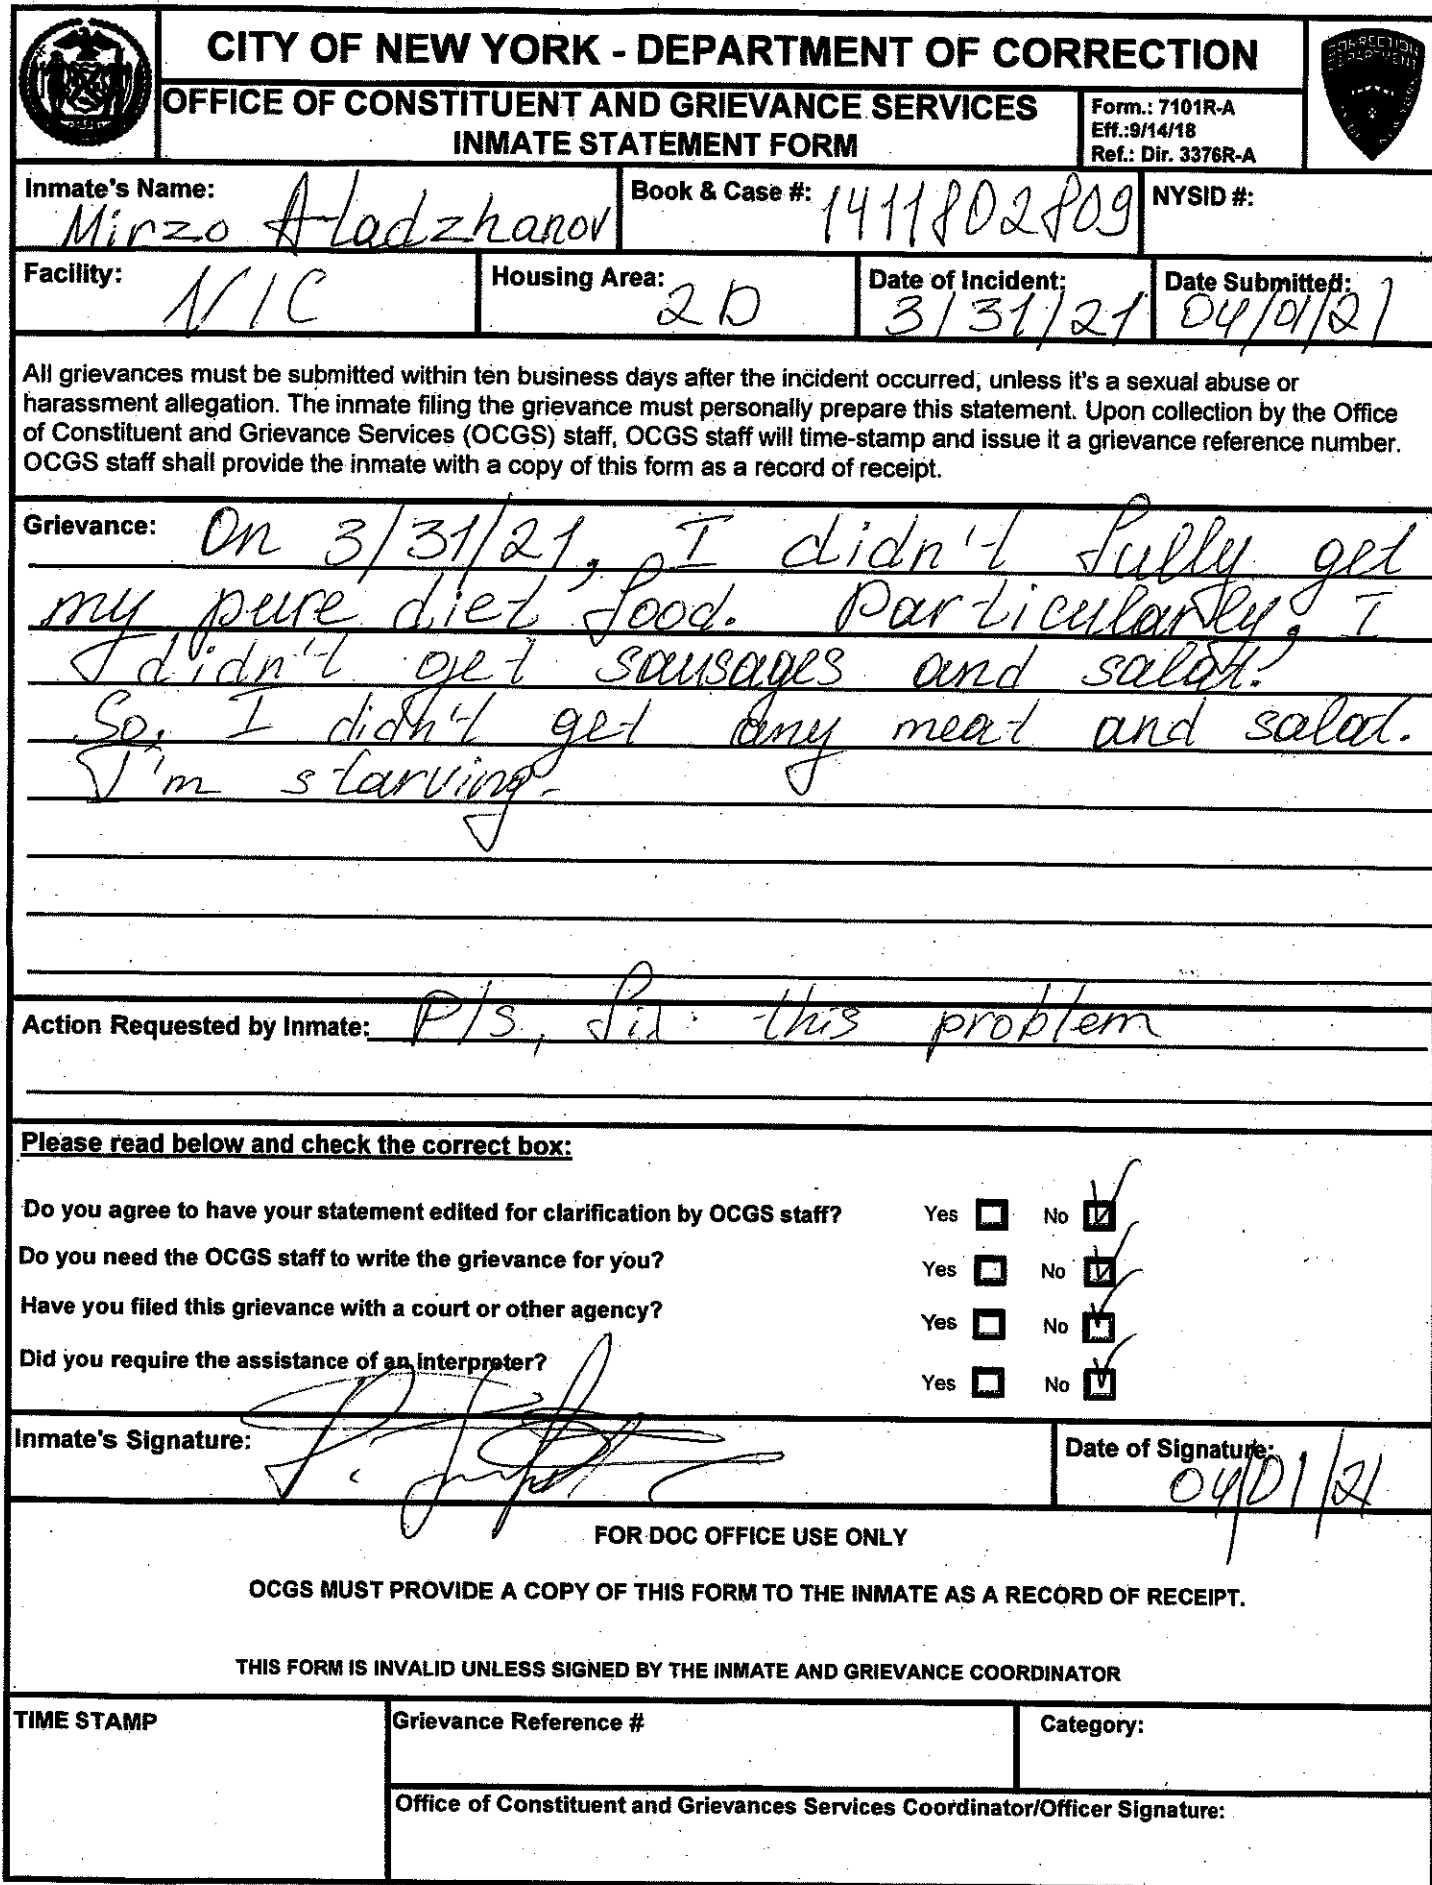 CITY OF NEW YORK - DEPARTMENT OF CORRECTION
OFFICE OF CONSTITUENT AND GRIEVANCE SERVICES
INMATE STATEMENT FORM
Form.: 7101R-A
Eff.:9/14/18
Ref.: Dir. 3376R-A
Inmate's Name: Mirzo Aladzhanov
Book & Case #: 1411802809
NYSID #:
Facility: NIC
Housing Area: 2D
Date of Incident: 3/31/21
Date Submitted: 04/01/21
All grievances must be submitted within ten business days after the incident occurred, unless it's a sexual abuse or
harassment allegation. The inmate filing the grievance must personally prepare this statement. Upon collection by the Office
of Constituent and Grievance Services (OCGS) staff, OCGS staff will time-stamp and issue it a grievance reference number.
OCGS staff shall provide the inmate with a copy of this form as a record of receipt.
Grievance: On 3/31/21, I didn't fully get
my pure diet food. Particularly, I
didn't get sausages and salat.
So, I didn't get any meat and salat.
I'm starving.
Action Requested by Inmate: Pls, fix this problem
Please read below and check the correct box:
Do you agree to have your statement edited for clarification by OCGS staff? Yes No
Do you need the OCGS staff to write the grievance for you? Yes No
Have you filed this grievance with a court or other agency? Yes No
Did you require the assistance of an interpreter? Yes No
Inmate's Signature:
Date of Signature: 04/01/21
FOR DOC OFFICE USE ONLY
OCGS MUST PROVIDE A COPY OF THIS FORM TO THE INMATE AS A RECORD OF RECEIPT.
THIS FORM IS INVALID UNLESS SIGNED BY THE INMATE AND GRIEVANCE COORDINATOR
TIME STAMP
Grievance Reference #
Category:
Office of Constituent and Grievances Services Coordinator/Officer Signature: